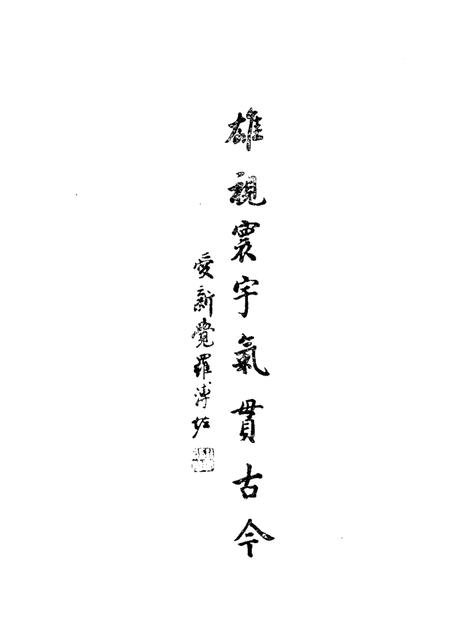 雄視寰宇氣貫古今
愛新覺羅溥佐